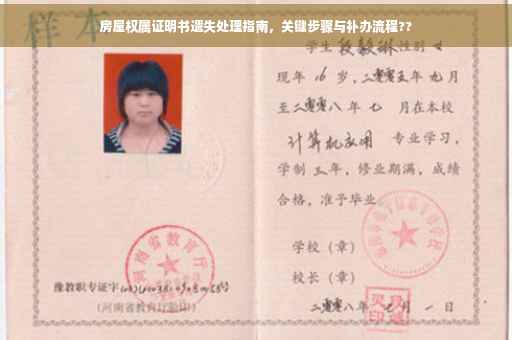 房屋权属证明书遗失处理指南，关键步骤与补办流程??
样本
学生段毅琳性别 女
现年 16 岁，二零零五年 九月
至二零零八年 七 月在本校
计算机应用 专业学习，
学制 三年，修业期满，成绩
合格，准予毕业
学校（章）
校长（章）
二零零八年 七 月 一 日
河南省教育厅
豫教职专证字
(河南省教育厅验印)